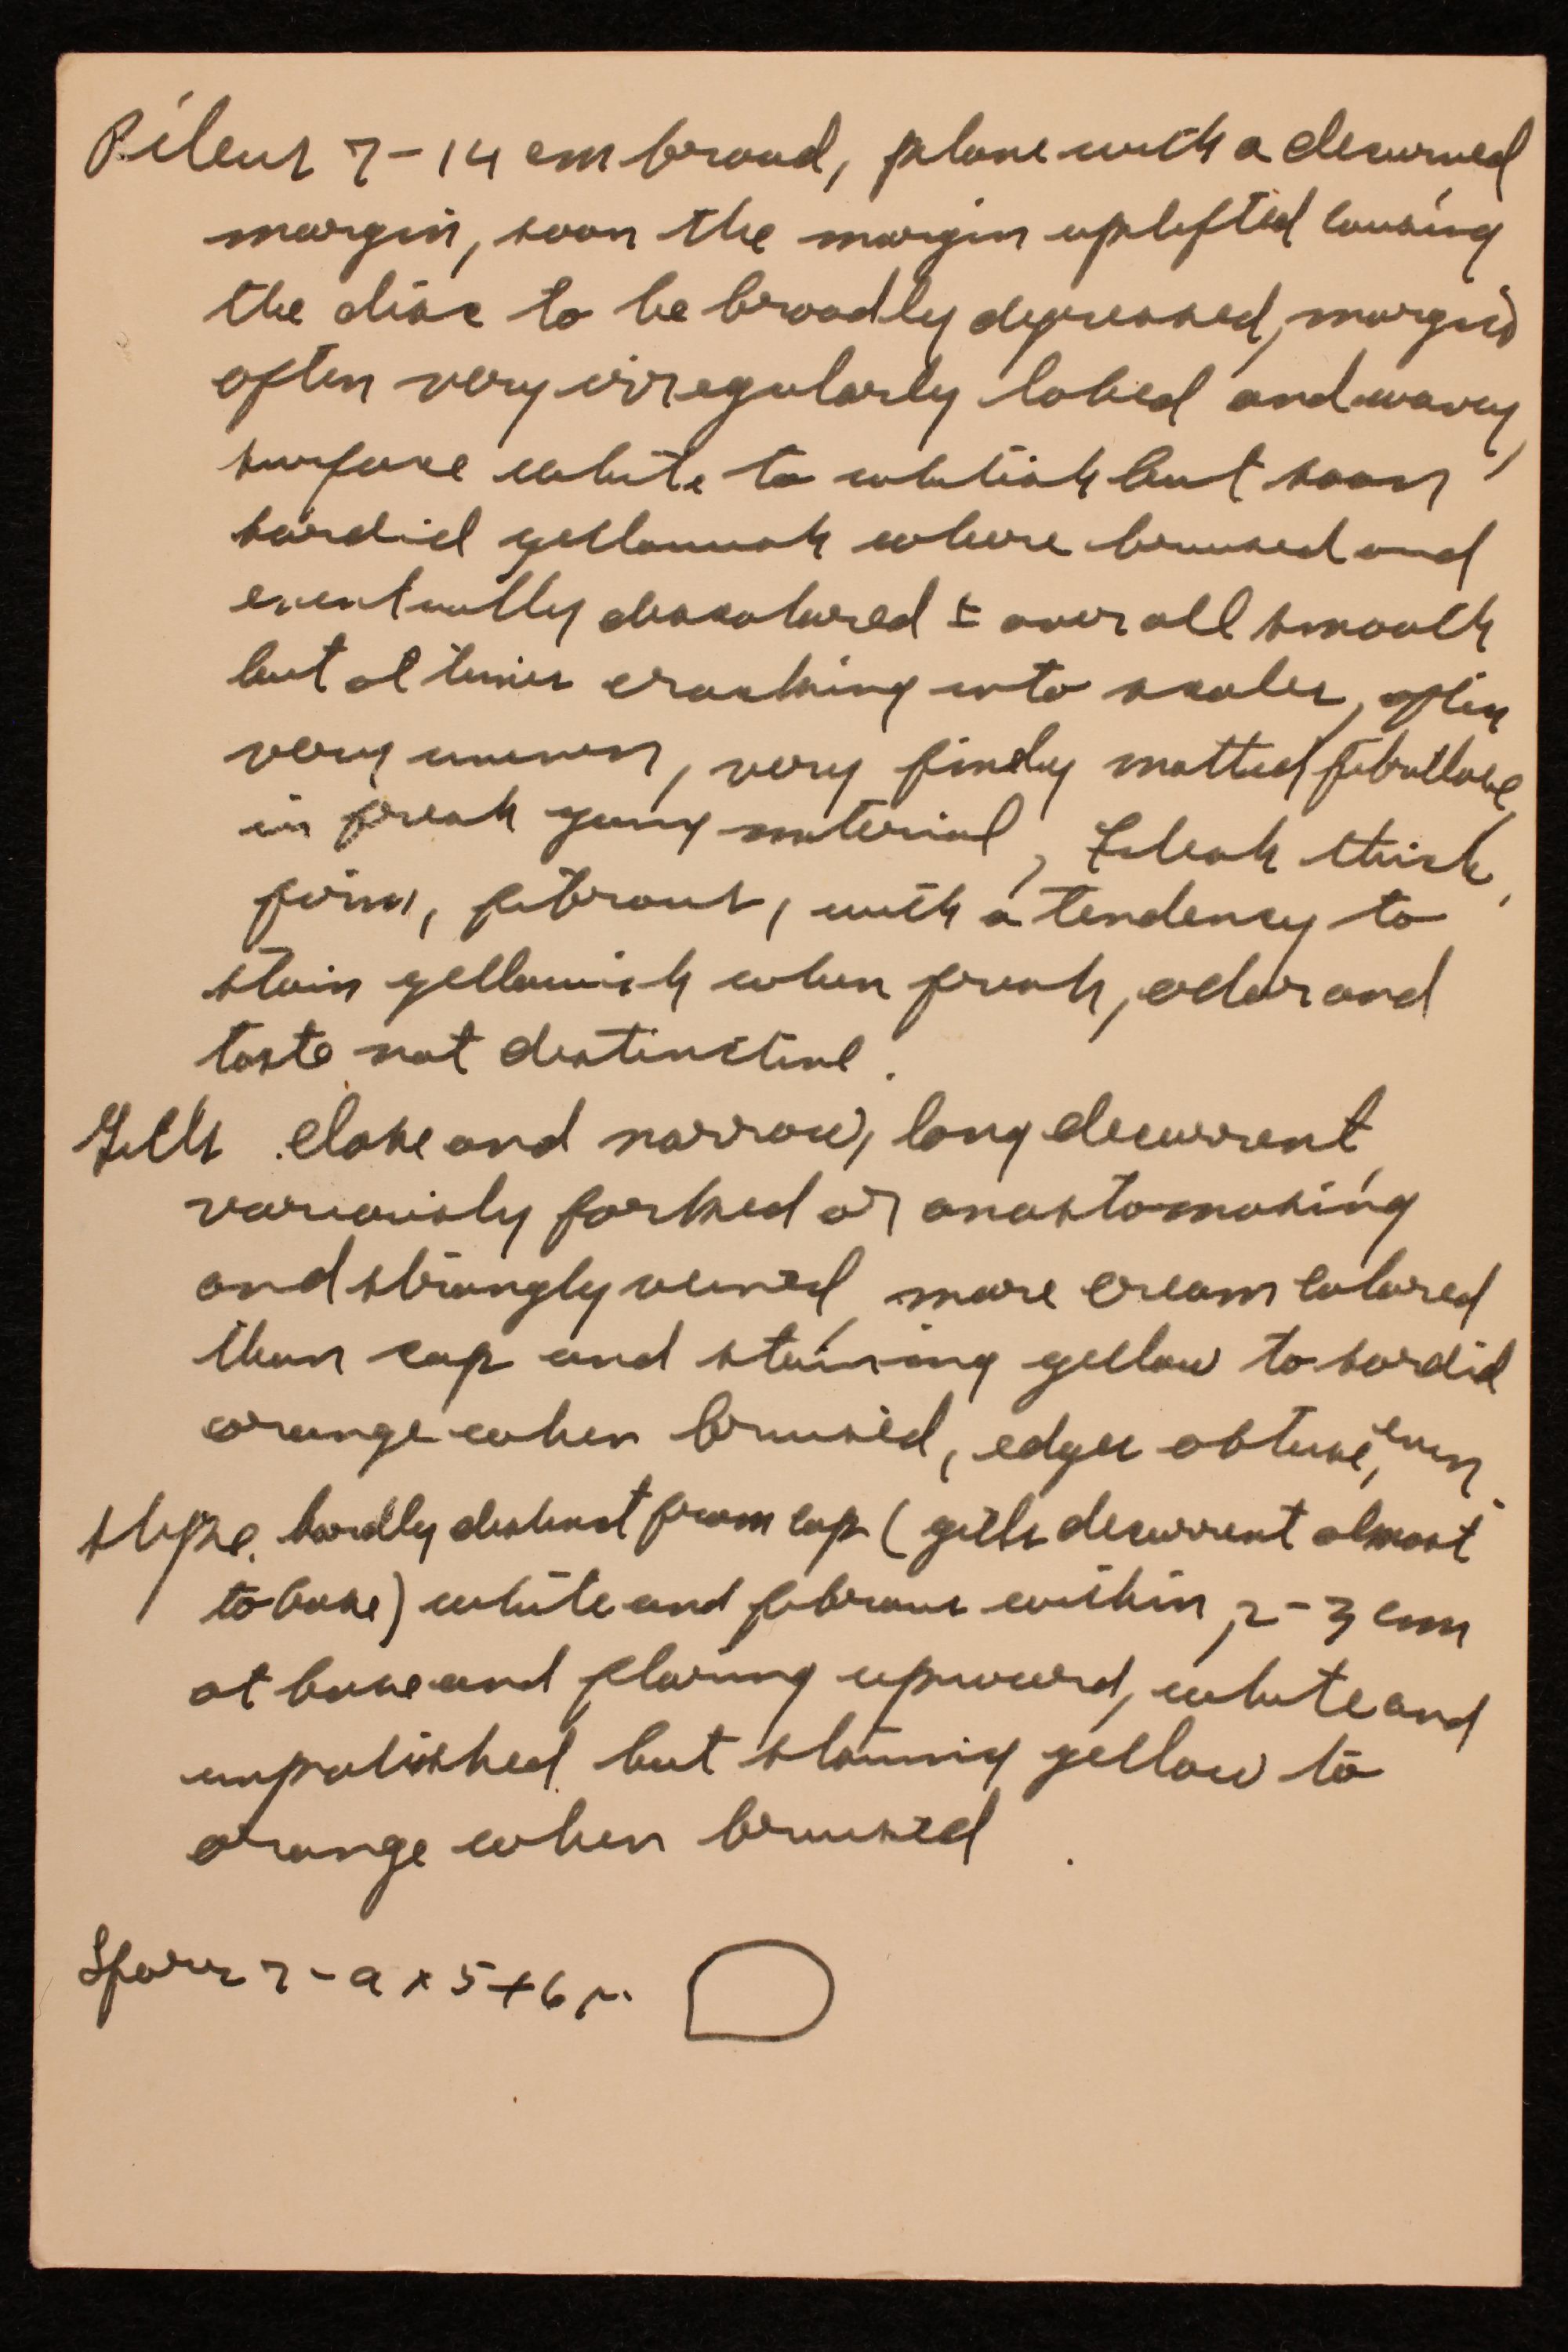 Pileus 7-14 cm broad, plane with a decurved
margin, soon the margin uplifted causing
the disc to be broadly depressed, margin
often very irregularly lobed and wavy,
surface white to whitish but soon
sordid yellowish where bruised and
eventually discolored ± over all smooth
but at times cracking into scales, often
very uneven, very finely matted fibrillose,
in fresh young material, Flesh thick,
firm, fibrous, with a tendency to
stain yellowish when fresh, odor and
taste not distinctive.
Gills close and narrow, long decurrent,
variously forked or anastomosing
and strongly veined, more cream colored
than cap and staining yellow to sordid
orange when bruised, edges obtuse, even
stipe hardly distinct from cap (gills decurrent almost
to base) white and fibrous within, 2-3 cm
at base and flaring upward, white and
unpolished but staining yellow to
orange when bruised.
Spores 7-9 x 5+6 µ.